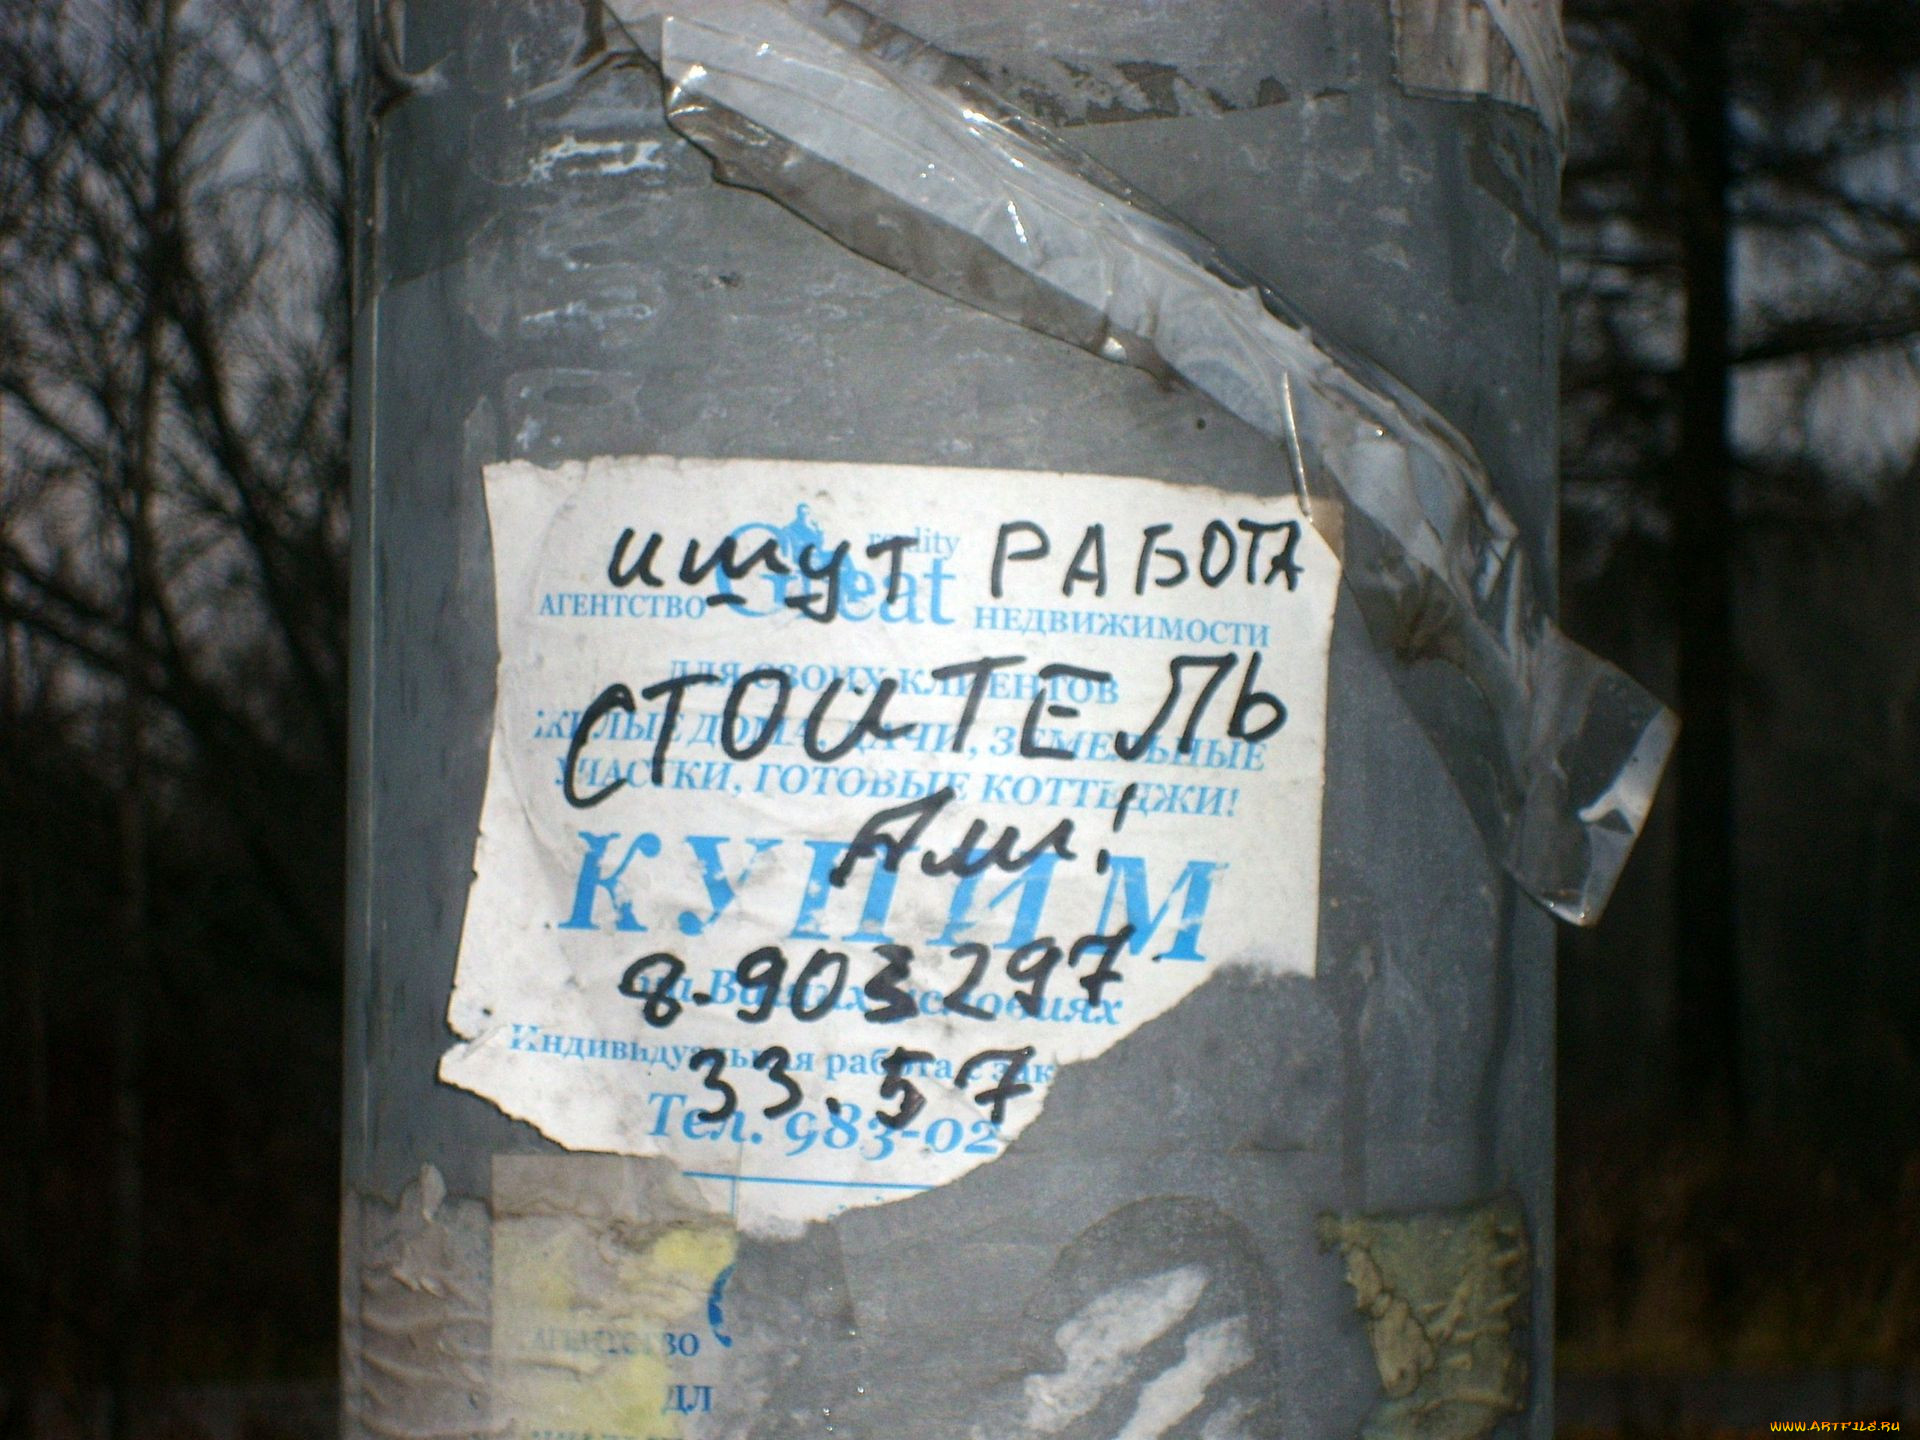 ишут РАБОТА
reality
Great
АГЕНТСТВО НЕДВИЖИМОСТИ
ДЛЯ СВОИХ КЛИЕНТОВ
СТОИТЕЛЬ
ЖИЛЫЕ ДОМА, ДАЧИ, ЗЕМЕЛЬНЫЕ
УЧАСТКИ, ГОТОВЫЕ КОТТЕДЖИ!
Али!
КУПИМ
8-903297
на Ваших условиях
Индивидуальная работа с зак
33.57
Тел. 983-02
АГЕНТСТВО
ДЛ
WWW.ARTFILE.RU